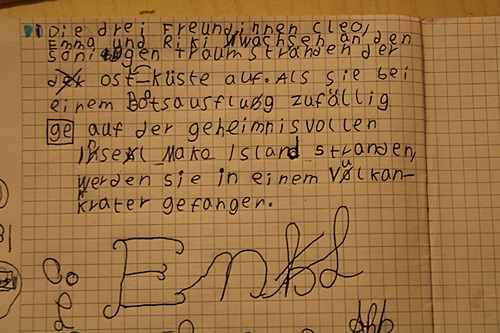 Die drei Freundinnen Cleo,
Emma und Riki wachsen an den
sonnigen Traumstränden der
ost-Küste auf. Als sie bei
einem Bootsausflug zufällig
ge auf der geheimnisvollen
Insel Mako Island stranden,
werden sie in einem Vulkan-
krater gefangen.